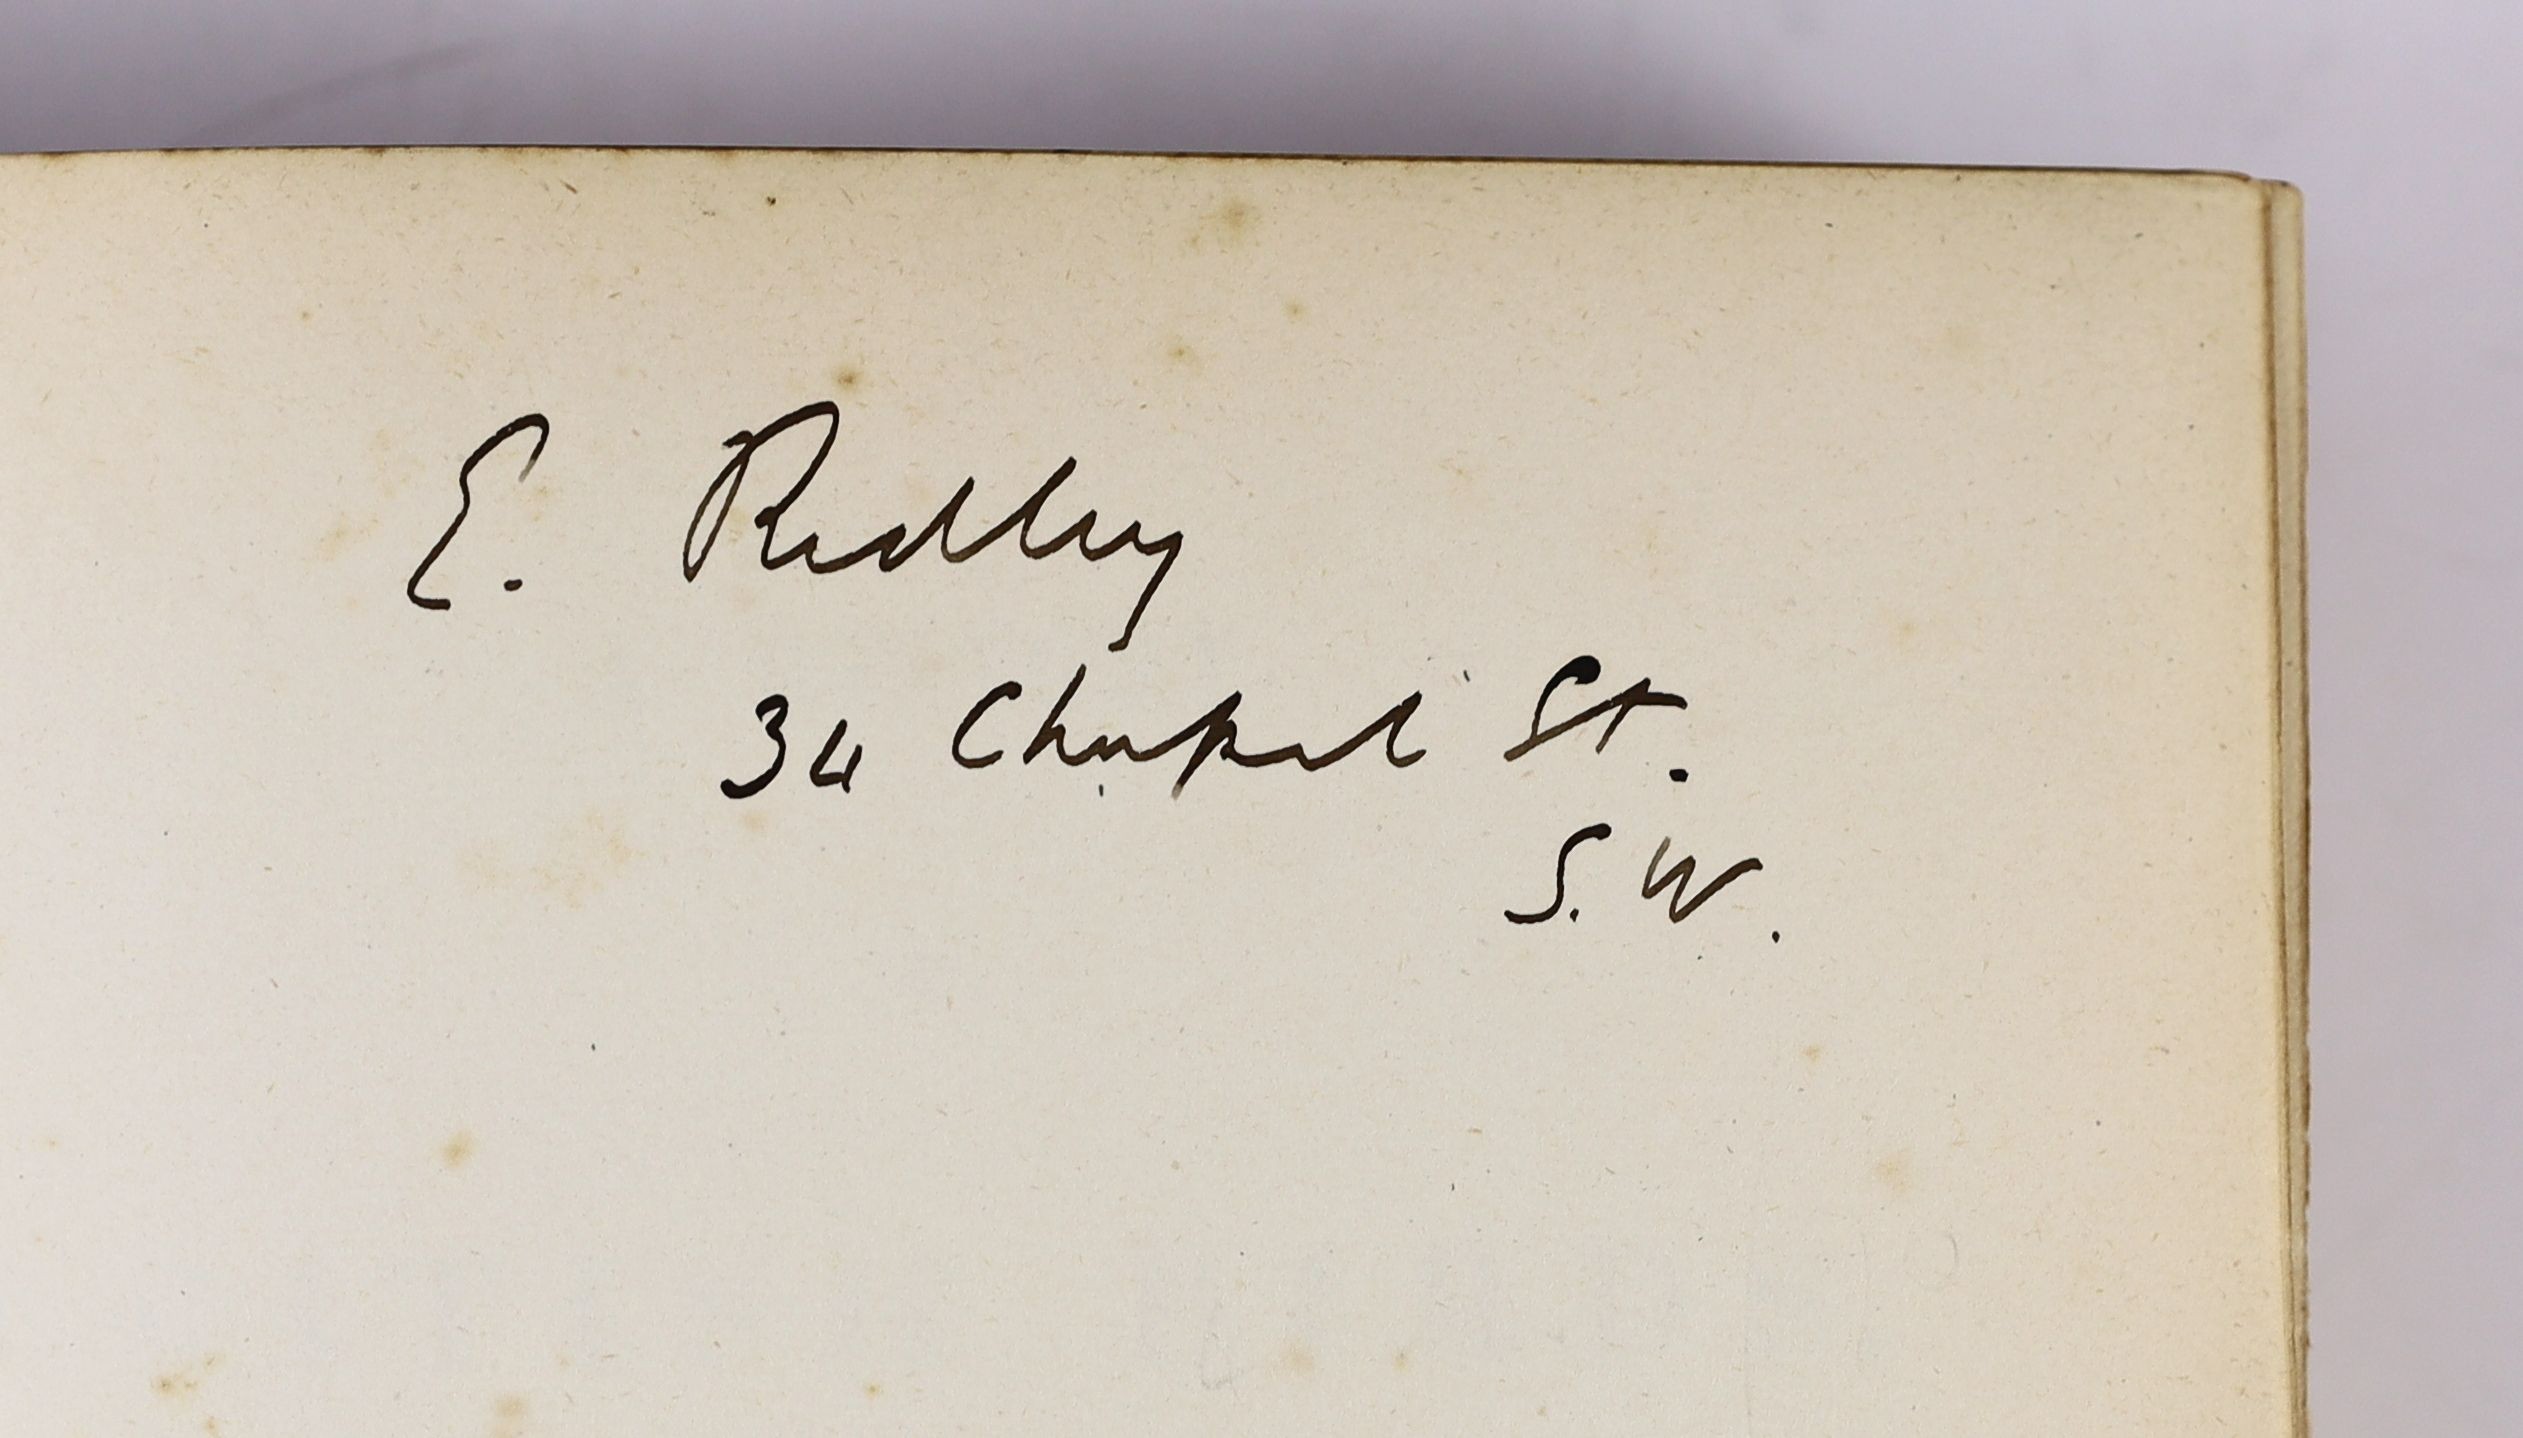 E. Ridley
34 Chapel St.
S. W.